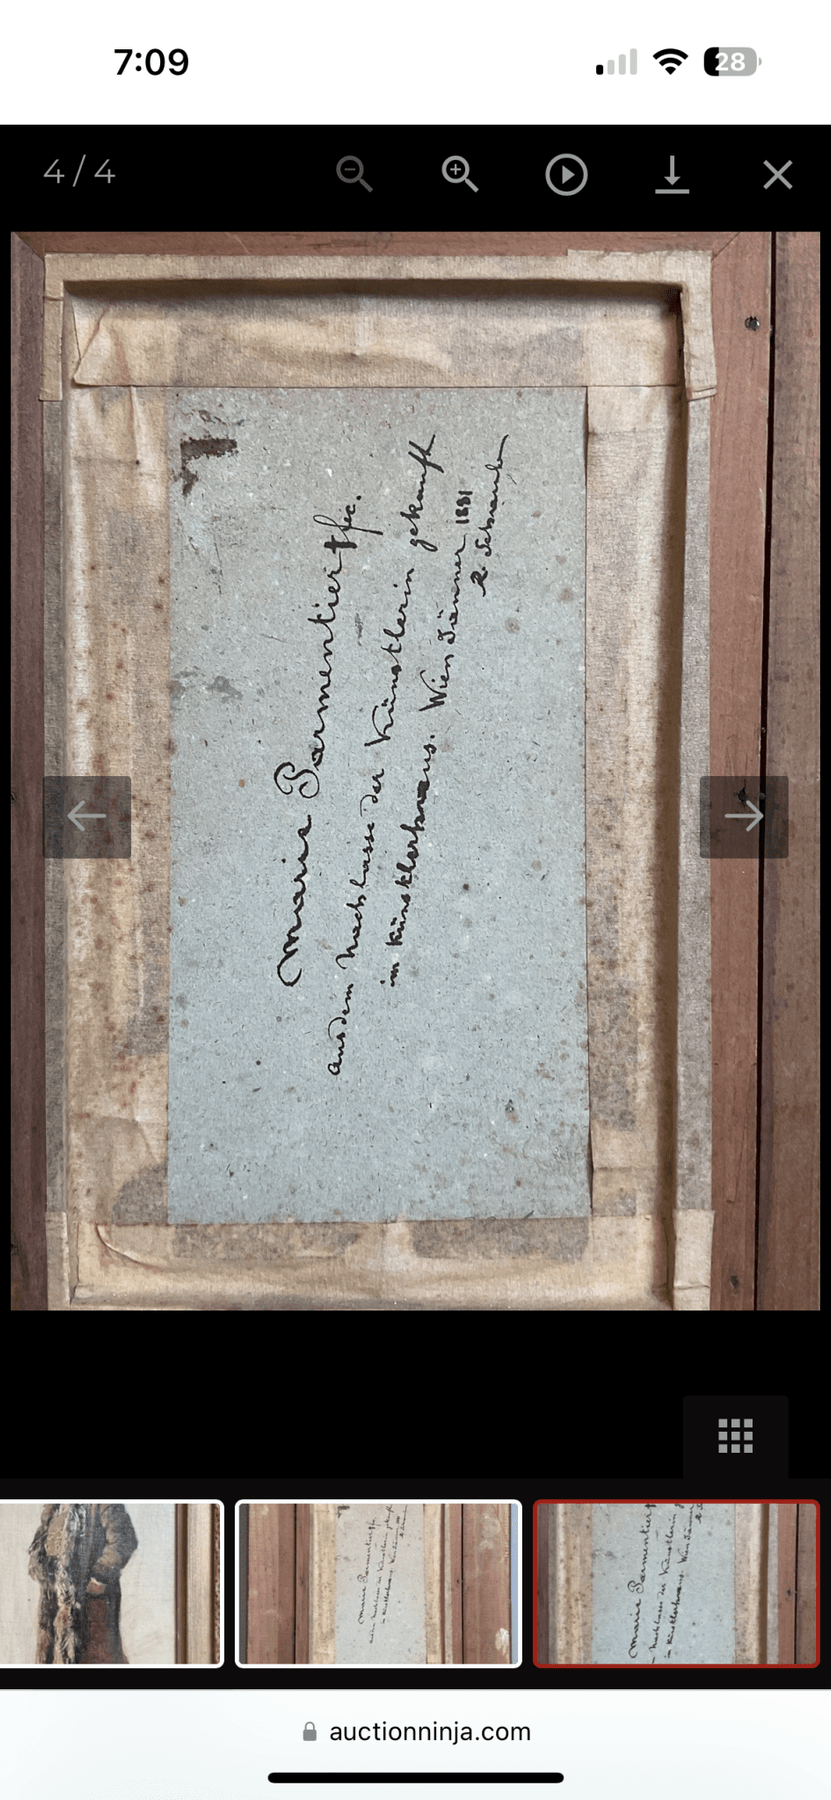 7:09
28
4 / 4
Marie Parmentier † fec.
aus dem Nachlasse der Künstlerin gekauft
im Künstlerhaus. Wien Jänner 1881
auctionninja.com